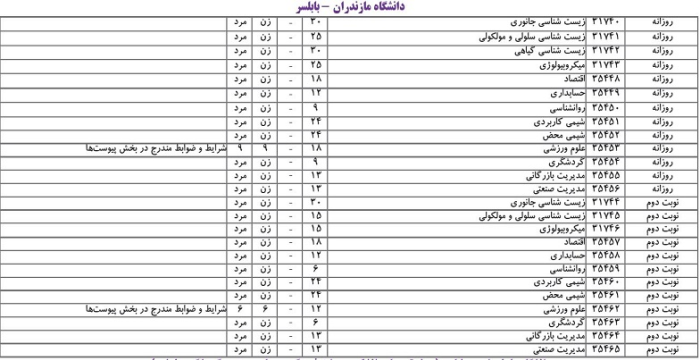 دانشگاه مازندران – بابلسر
روزانه ۳۱۷۴۰ زیست شناسی جانوری ۳۰ - زن مرد
روزانه ۳۱۷۴۱ زیست شناسی سلولی و مولکولی ۲۵ - زن مرد
روزانه ۳۱۷۴۲ زیست شناسی گیاهی ۳۰ - زن مرد
روزانه ۳۱۷۴۳ میکروبیولوژی ۲۵ - زن مرد
روزانه ۳۵۴۴۸ اقتصاد ۱۸ - زن مرد
روزانه ۳۵۴۴۹ حسابداری ۱۲ - زن مرد
روزانه ۳۵۴۵۰ روانشناسی ۹ - زن مرد
روزانه ۳۵۴۵۱ شیمی کاربردی ۲۴ - زن مرد
روزانه ۳۵۴۵۲ شیمی محض ۲۴ - زن مرد
روزانه ۳۵۴۵۳ علوم ورزشی ۱۸ - ۹ ۹ شرایط و ضوابط مندرج در بخش پیوست‌ها
روزانه ۳۵۴۵۴ گردشگری ۹ - زن مرد
روزانه ۳۵۴۵۵ مدیریت بازرگانی ۱۳ - زن مرد
روزانه ۳۵۴۵۶ مدیریت صنعتی ۱۳ - زن مرد
نوبت دوم ۳۱۷۴۴ زیست شناسی جانوری ۳۰ - زن مرد
نوبت دوم ۳۱۷۴۵ زیست شناسی سلولی و مولکولی ۱۵ - زن مرد
نوبت دوم ۳۱۷۴۶ میکروبیولوژی ۱۵ - زن مرد
نوبت دوم ۳۵۴۵۷ اقتصاد ۱۸ - زن مرد
نوبت دوم ۳۵۴۵۸ حسابداری ۱۲ - زن مرد
نوبت دوم ۳۵۴۵۹ روانشناسی ۶ - زن مرد
نوبت دوم ۳۵۴۶۰ شیمی کاربردی ۲۴ - زن مرد
نوبت دوم ۳۵۴۶۱ شیمی محض ۲۴ - زن مرد
نوبت دوم ۳۵۴۶۲ علوم ورزشی ۱۲ - ۶ ۶ شرایط و ضوابط مندرج در بخش پیوست‌ها
نوبت دوم ۳۵۴۶۳ گردشگری ۶ - زن مرد
نوبت دوم ۳۵۴۶۴ مدیریت بازرگانی ۱۳ - زن مرد
نوبت دوم ۳۵۴۶۵ مدیریت صنعتی ۱۳ - زن مرد